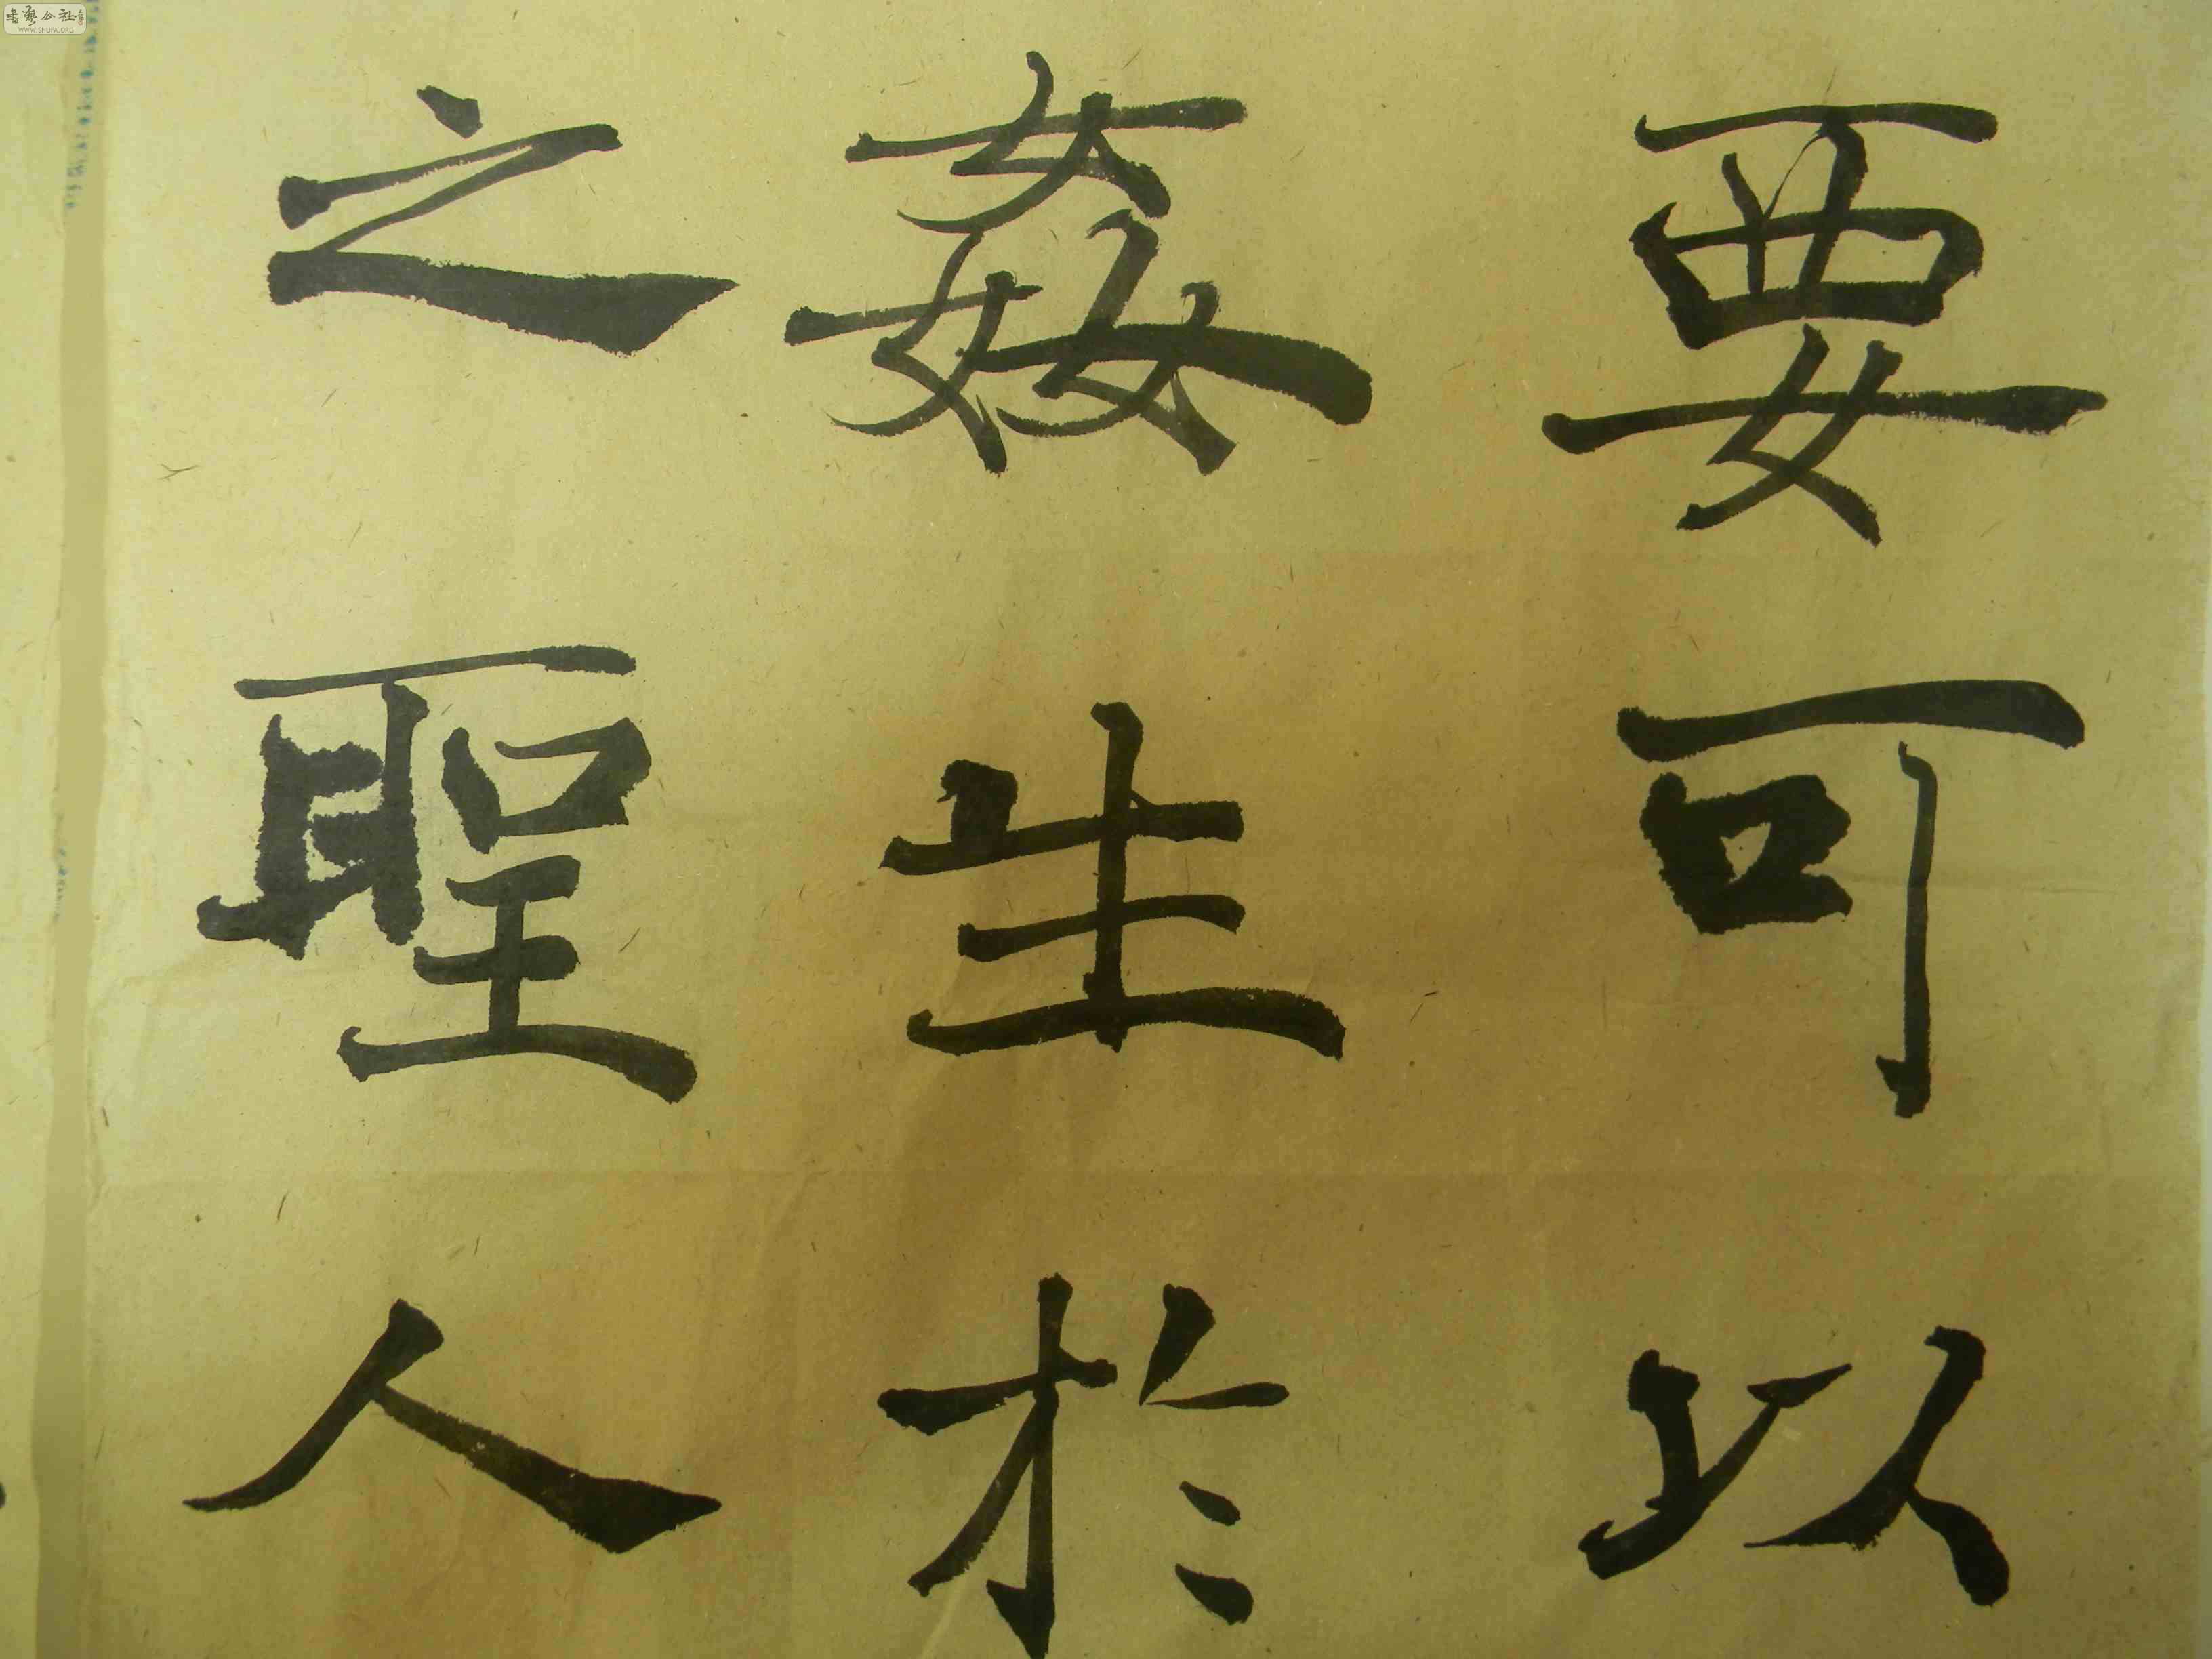 要可以
姦生於
之聖人
書藝公社
WWW.SHUFA.ORG